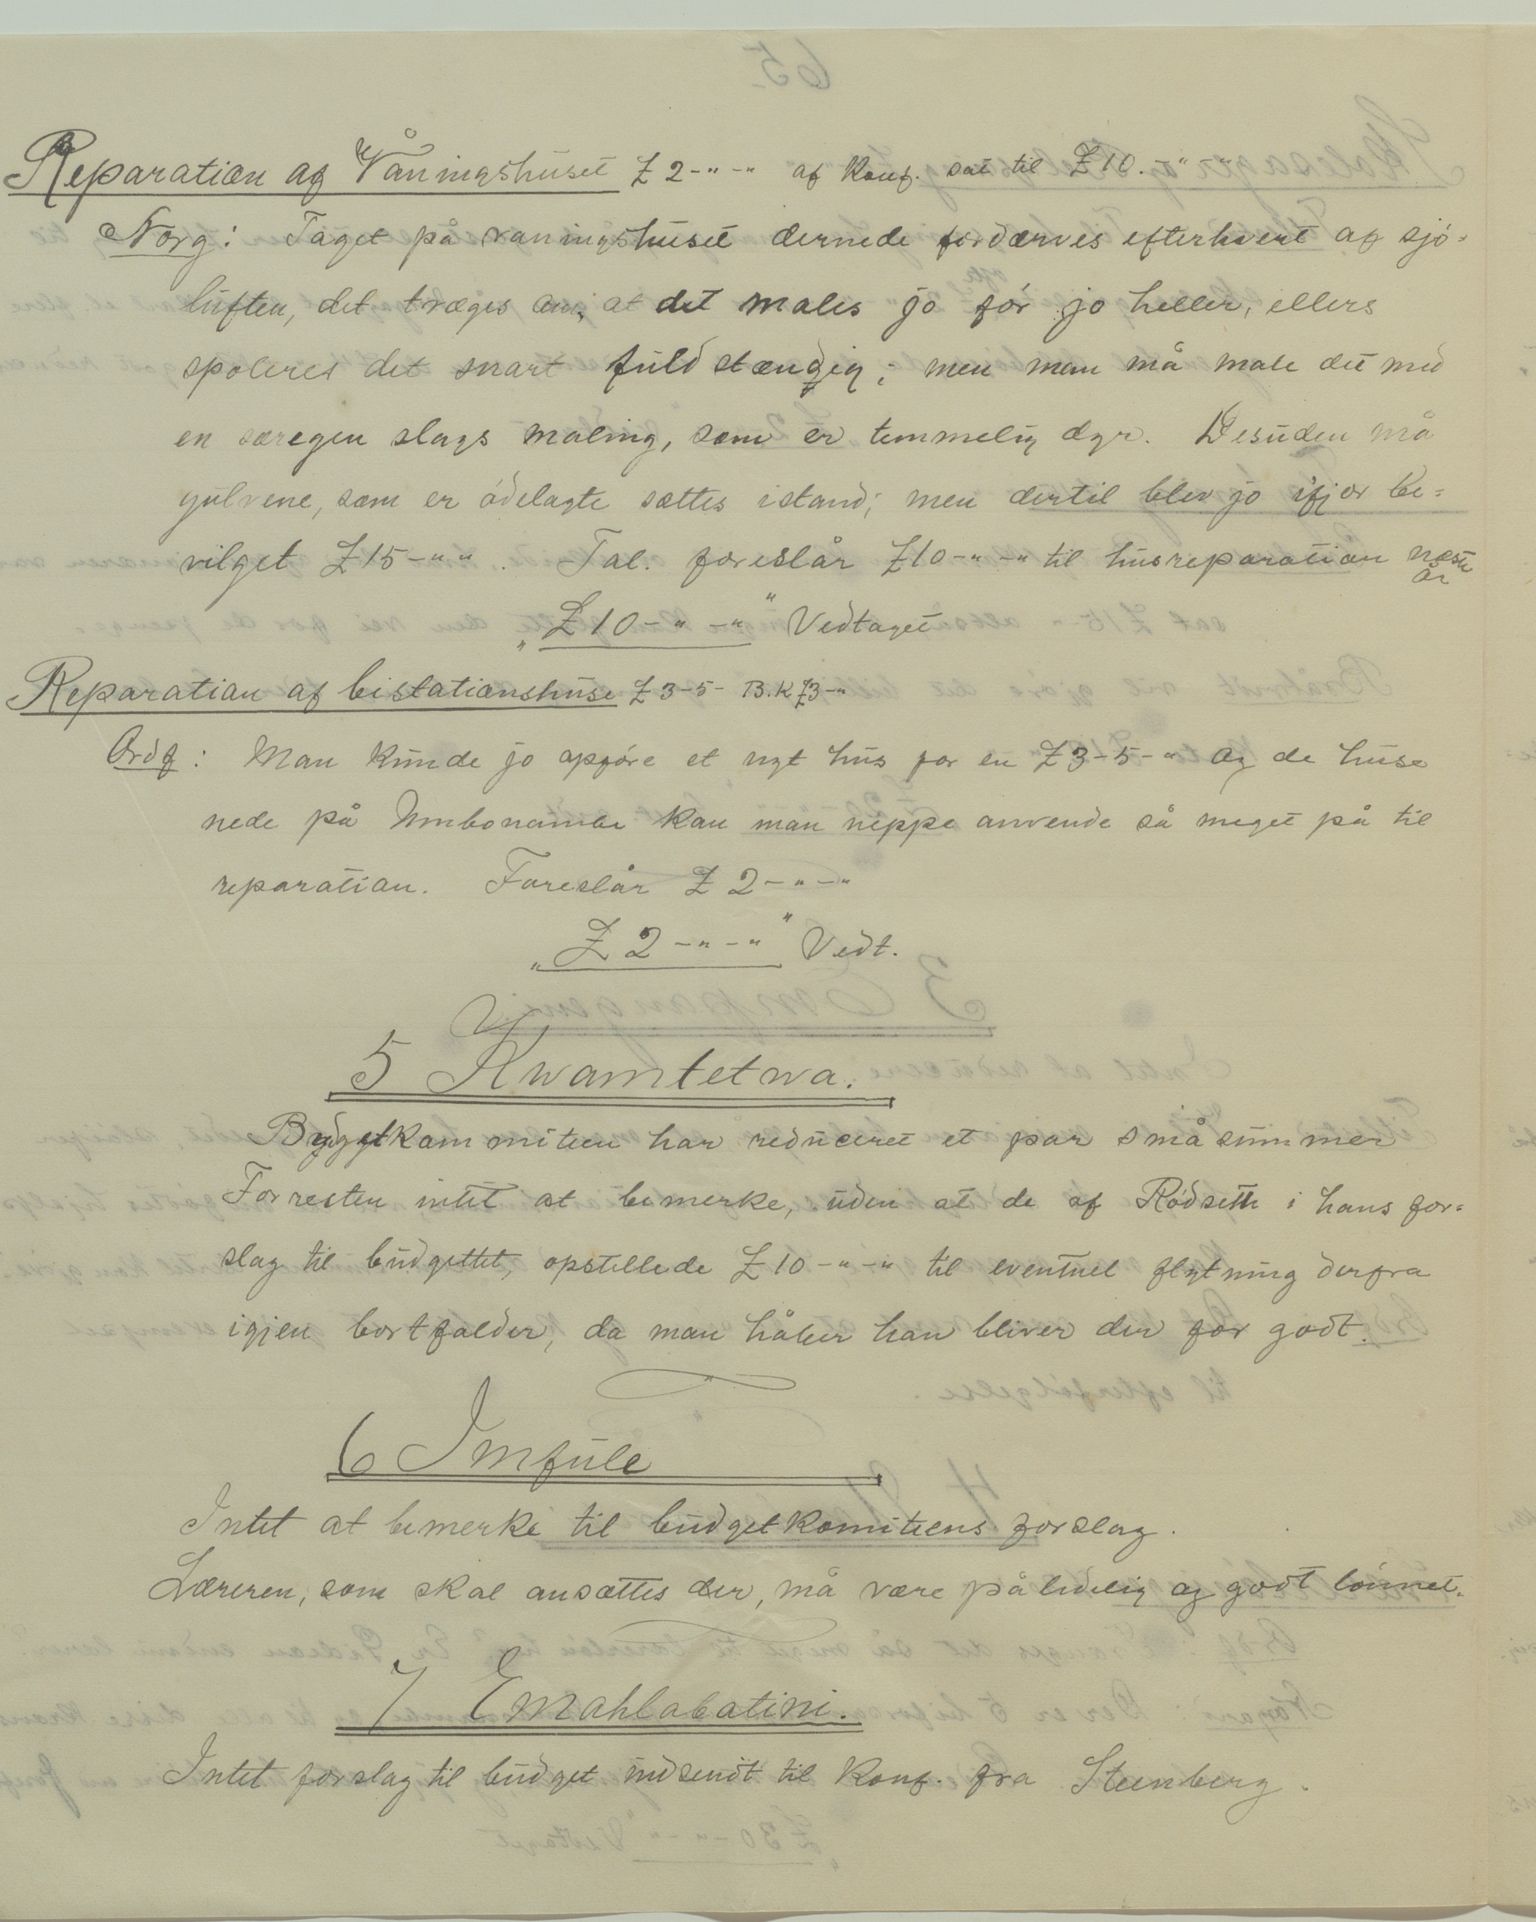 Reparation af Våningshuset £ 2-"-" af Konf. sat til £10.-"-"
Norg: Taget på vaningshuset dernede fordærves efterhvert af sjö-
luften, det træges om, at det males jo för jo heller, ellers
spoleres det snart fuldstændig; men man må male det med
en særegen slags maling, som er temmelig dyr. Desuden må
gulvene, som er ödelagte sættes istand; men dertil blev jo ifjor be-
vilget £15-"-". Tal. foreslår £10-"-" til husreparation næste år
"£10-"-"" Vedtaget
Reparation af bistationshuse £3-5- B.K £3-"
Ordf: Man kunde jo opföre et nyt hus for en £3-5-" og de huse
nede på Umbonambi kan man neppe anvende så meget på til
reparation. Foreslår £ 2-"-"
"£ 2-"-"" Vedt.
5 Kwamtetwa.
Budgetkommiteen har reduceret et par små summer
Forresten intet at bemerke, uden at de af Rödseth i hans for-
slag til budgettet, opstillede £10-"-" til eventuel flytning derfra
igjen bortfalder, da man håber han bliver der for godt.
6 Imfule
Intet at bemerke til budgetkomiteens forslag.
Læreren, som skal ansættes der, må være pålidelig og godt lönnet.
7 Emahlabatini.
Intet forslag til budget indsendt til Konf. fra Steenberg.